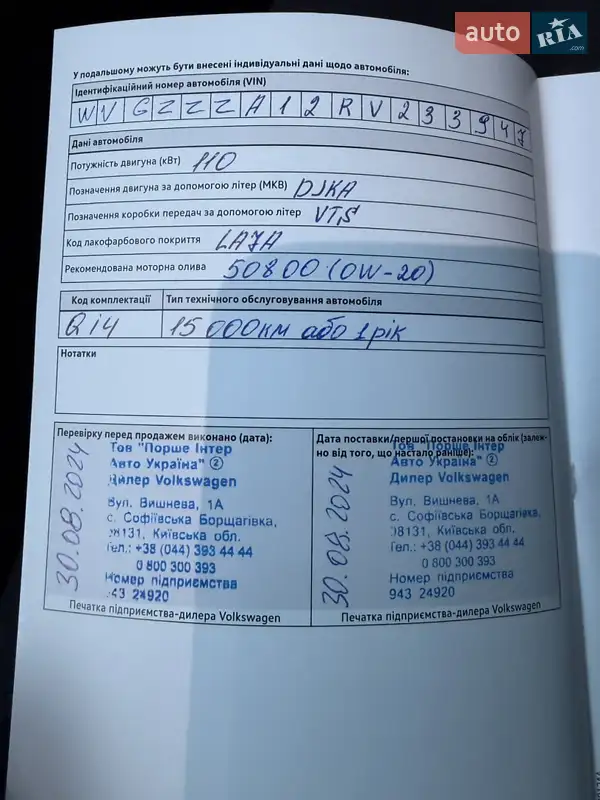 auto RIA .com
У подальшому можуть бути внесені індивідуальні дані щодо автомобіля:
Ідентифікаційний номер автомобіля (VIN)
W V G Z Z Z A 1 2 R V 2 3 3 9 4 7
Дані автомобіля
Потужність двигуна (кВт) 110
Позначення двигуна за допомогою літер (МКВ) DJKA
Позначення коробки передач за допомогою літер VTS
Код лакофарбового покриття LA7A
Рекомендована моторна олива 50800 (0W-20)
Код комплектації Тип технічного обслуговування автомобіля
Qi4 15 000км або 1 рік
Нотатки
Перевірку перед продажем виконано (дата):
30.08.2024
Тов "Порше Інтер
Авто Україна" ②
Дилер Volkswagen
Вул. Вишнева, 1А
с. Софіївська Борщагівка,
08131, Київська обл.
Тел.: +38 (044) 393 44 44
0 800 300 393
Номер підприємства
943 24920
Печатка підприємства-дилера Volkswagen
Дата поставки/першої постановки на облік (залеж-
но від того, що настало раніше):
30.08.2024
Тов "Порше Інтер
Авто Україна" ②
Дилер Volkswagen
Вул. Вишнева, 1А
с. Софіївська Борщагівка,
08131, Київська обл.
Тел.: +38 (044) 393 44 44
0 800 300 393
Номер підприємства
943 24920
Печатка підприємства-дилера Volkswagen